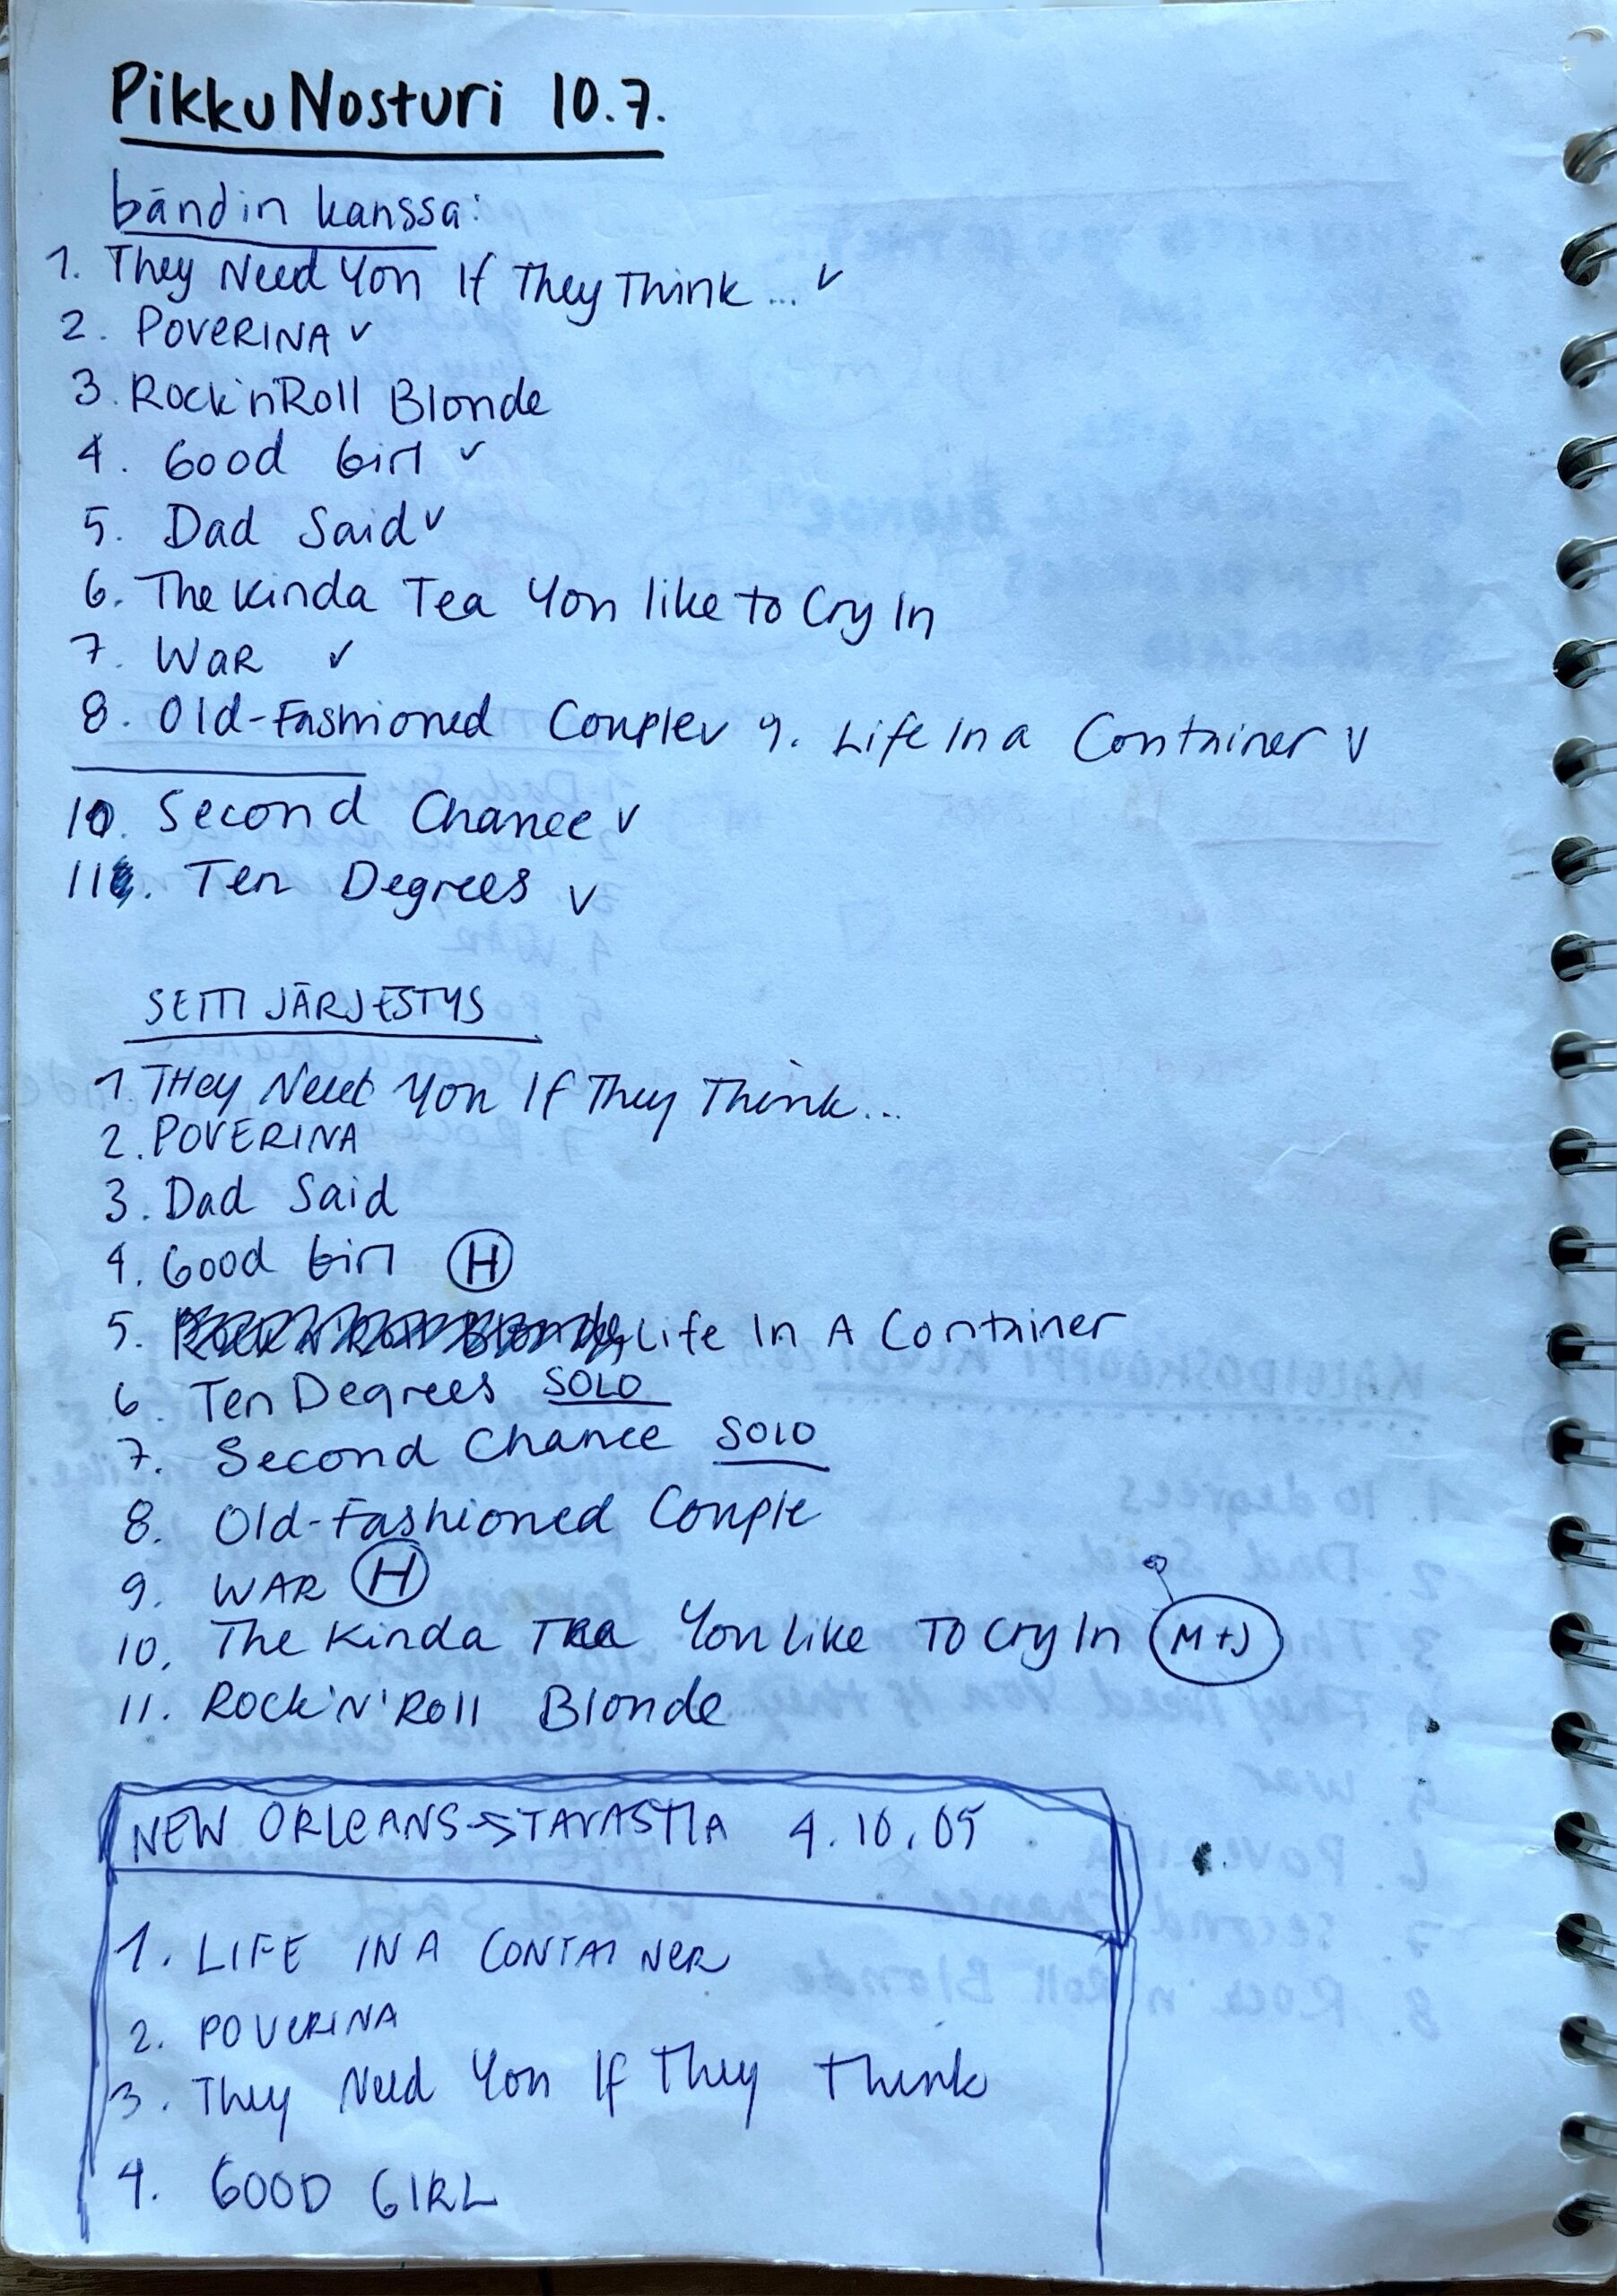 PikkuNosturi 10.7.
bändin kanssa:
1. They Need You If They Think... ✓
2. POVERINA ✓
3. Rock'n'Roll Blonde
4. Good Girl ✓
5. Dad Said ✓
6. The Kinda Tea You like to Cry In
7. WAR ✓
8. Old-Fashioned Couple ✓ 9. Life In a Container ✓
10. Second Chance ✓
11. Ten Degrees ✓
SETTI JÄRJESTYS
1. THey Need You If They Think...
2. POVERINA
3. Dad Said
4. Good Girl H
5. Life In A Container
6. Ten Degrees SOLO
7. Second Chance SOLO
8. Old-Fashioned Couple
9. WAR H
10. The Kinda Tea You Like To Cry In M+J
11. Rock'N'Roll Blonde
NEW ORLEANS→TAVASTIA 4.10.05
1. LIFE IN A CONTAINER
2. POVERINA
3. They Need You If They Think
4. GOOD GIRL